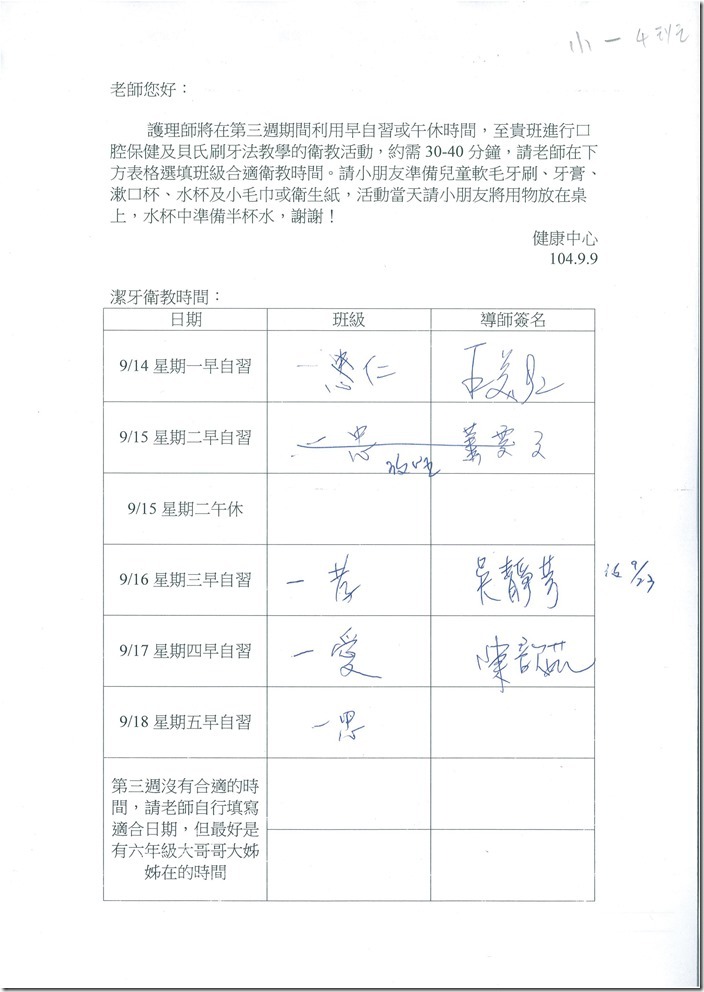 小一 4班
老師您好：
護理師將在第三週期間利用早自習或午休時間，至貴班進行口
腔保健及貝氏刷牙法教學的衛教活動，約需 30-40 分鐘，請老師在下
方表格選填班級合適衛教時間。請小朋友準備兒童軟毛牙刷、牙膏、
漱口杯、水杯及小毛巾或衛生紙，活動當天請小朋友將用物放在桌
上，水杯中準備半杯水，謝謝！
健康中心
104.9.9
潔牙衛教時間：
日期 班級 導師簽名
9/14 星期一早自習 一 仁
9/15 星期二早自習 一忠
9/15 星期二午休
9/16 星期三早自習 一孝 吳靜芳 改 9/23
9/17 星期四早自習 一愛 陳韻茹
9/18 星期五早自習 一忠
第三週沒有合適的時
間，請老師自行填寫
適合日期，但最好是
有六年級大哥哥大姊
姊在的時間